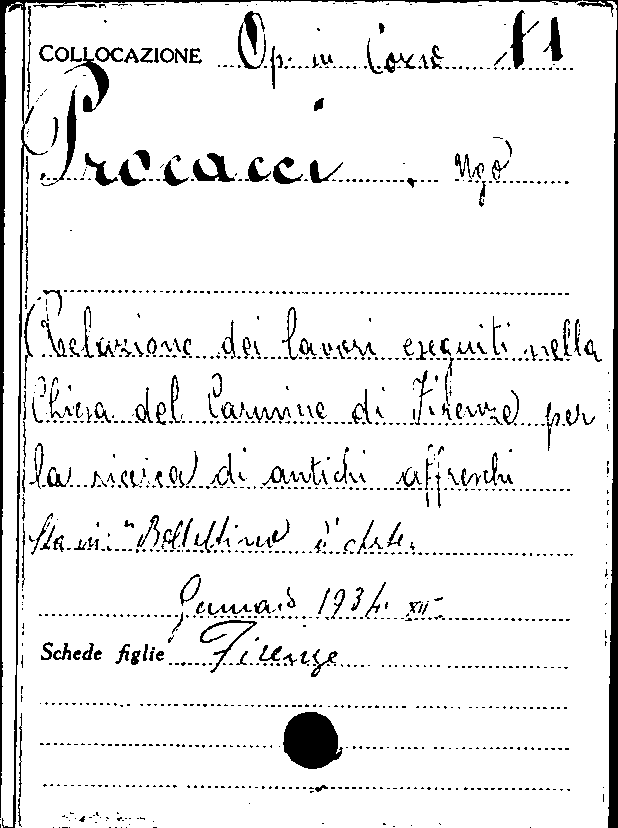 COLLOCAZIONE Op. in Corso 11
Procacci. Ugo
Relazione dei lavori eseguiti nella
Chiesa del Carmine di Firenze per
la ricerca di antichi affreschi
Sta in: "Bollettino d'Arte.
Gennaio 1934. XII-
Schede figlie Firenze